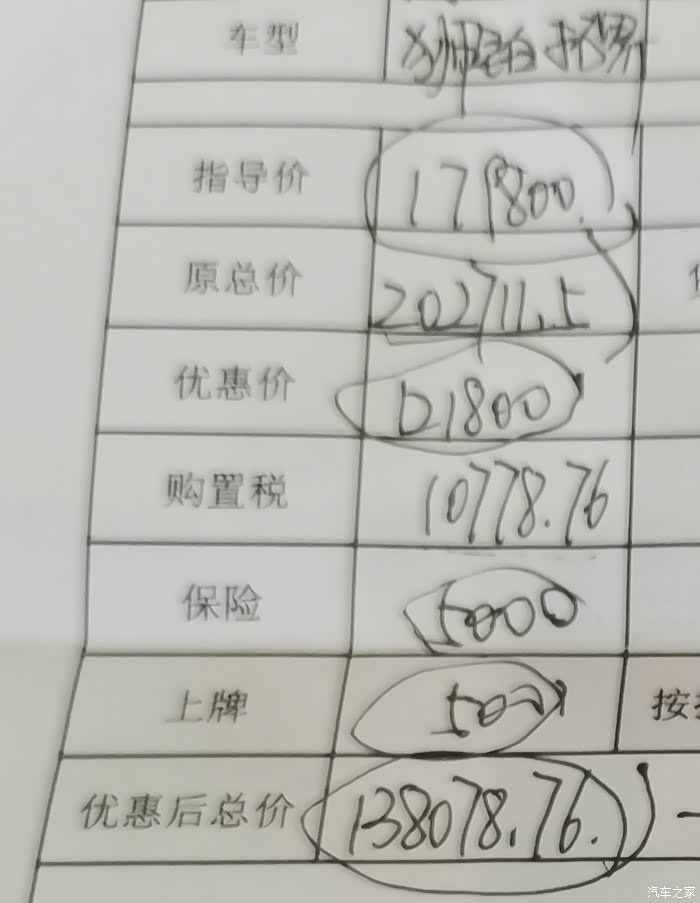 车型
指导价 179800
原总价 202711.5
优惠价 121800
购置税 10778.76
保险 5000
上牌 500 按
优惠后总价 138078.76
汽车之家